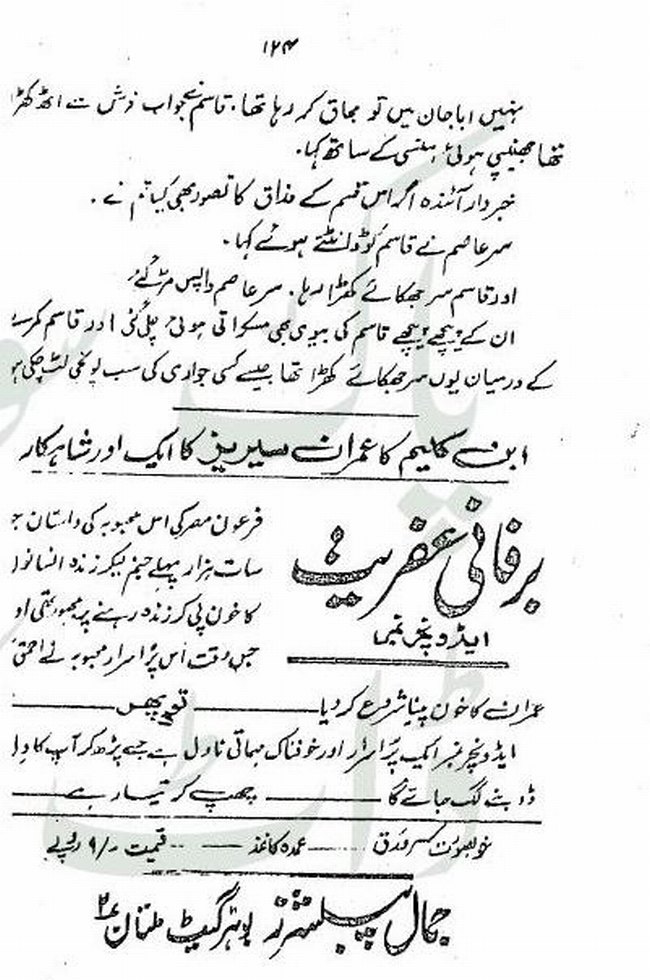 ۱۲۴
نہیں اباجان میں تو مجاق کر رہا تھا۔ قاسم نے جواب فرش سے اٹھ کھڑا
تھا جھینپی ہوئی ہنسی کے ساتھ کہا۔
خبردار آئندہ اگر اس قسم کے مذاق کا تصور بھی کیا تم نے۔
سر عاصم نے قاسم کو ڈانٹتے ہوئے کہا۔
اور قاسم سر جھکائے کھڑا رہا۔ سر عاصم واپس مڑ گئے
ان کے پیچھے پیچھے قاسم کی بیوی بھی مسکراتی ہوئی چلی گئی اور قاسم کمرے
کے درمیان یوں سر جھکائے کھڑا تھا جیسے کسی جواری کی سب پونجی لٹ چکی ہو
ابن کلیم کا عمران سیریز کا ایک اور شاہکار
برفانی عفریت
ایڈونچر نمبر
فرعون مصر کی اس محبوبہ کی داستان جو
سات ہزار پہلے جنم لیکر زندہ انسانوں
کا خون پی کر زندہ رہنے پر مجبور تھی او
جس وقت اس پراسرار محبوبہ نے احمق
عمران کا خون پینا شروع کر دیا ــــــ تو پھر
ایڈونچر نمبر ایک پراسرار اور خوفناک مہماتی ناول ہے جسے پڑھ کر آپ کا دل
ڈوبنے لگ جائے گا ــــــ چھپ کر تیار ہے ــــــ
خوبصورت سرورق ــــ عمدہ کاغذ ــــ قیمت ‎/۹ روپے
جمال پبلشرز بوہڑ گیٹ ملتان